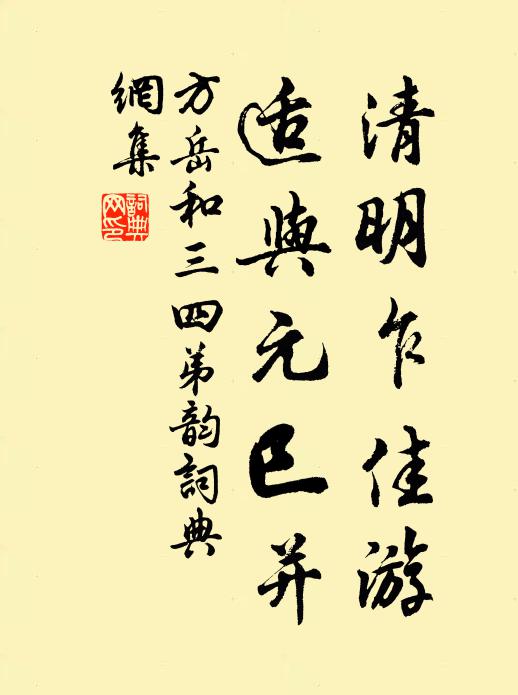 清明乍佳游
适與元巳并
方岳和三四弟韵詞典
網集
詞典網印